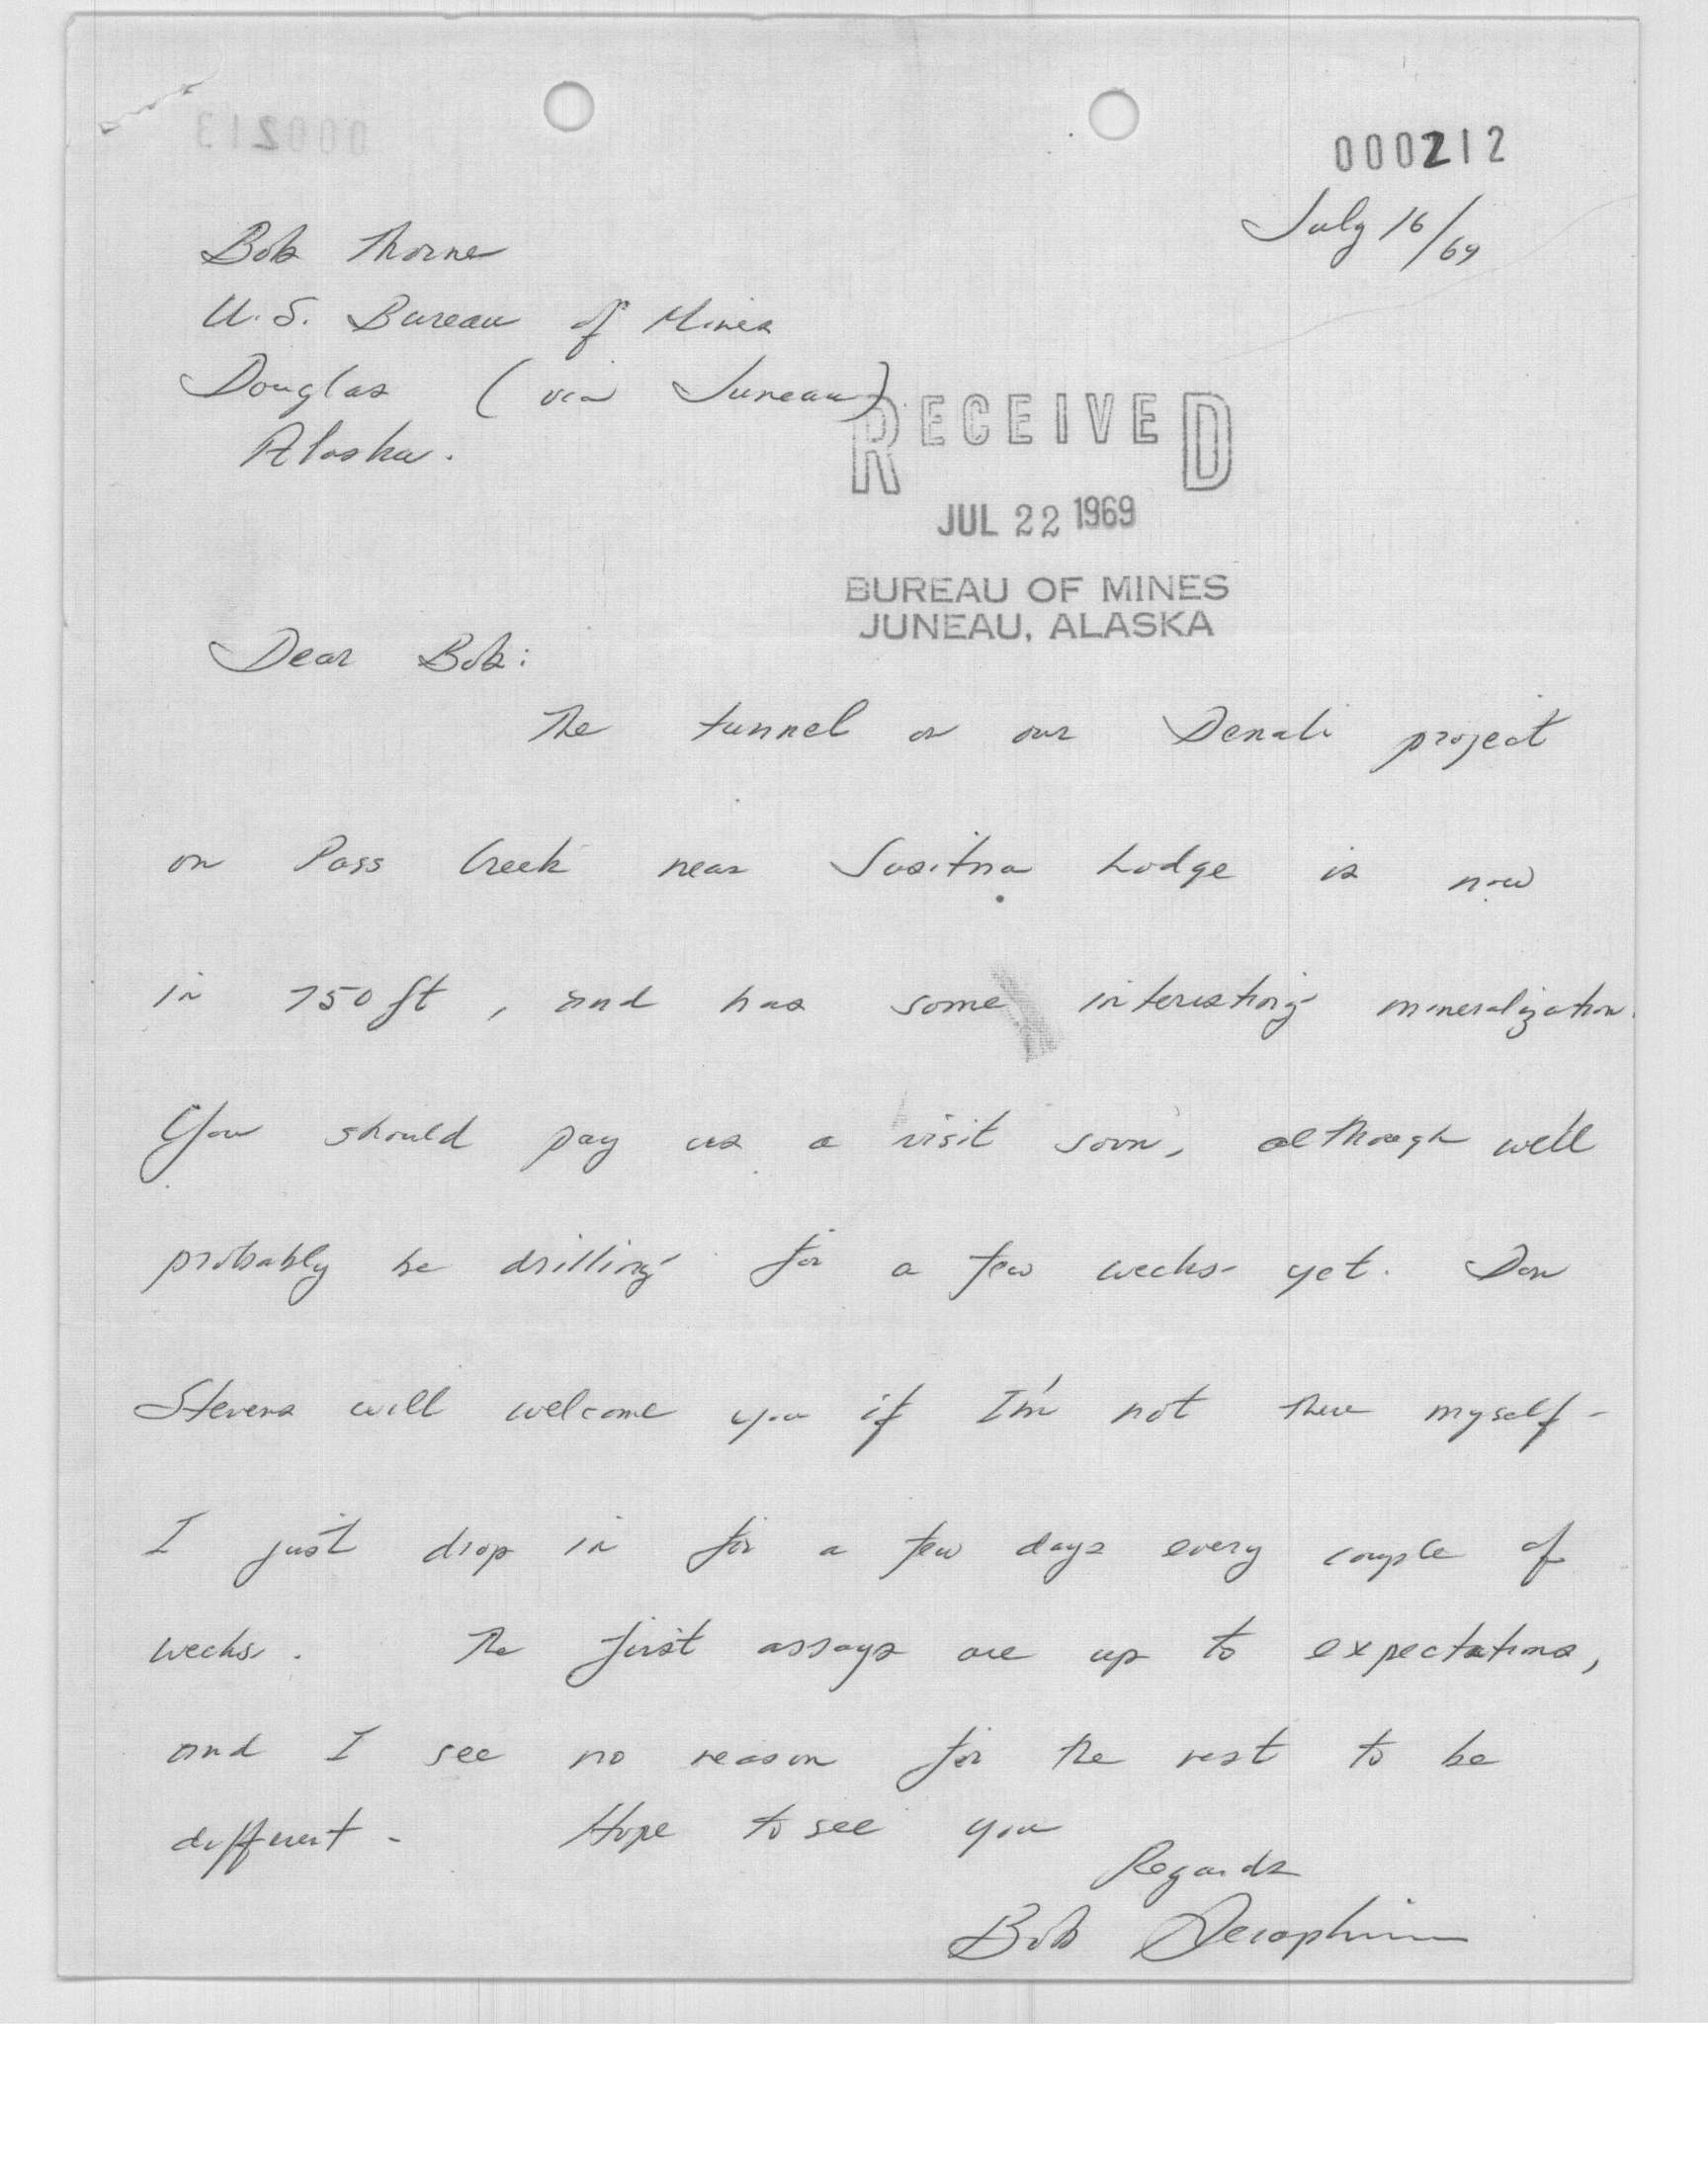 000213
000212
July 16/69
Bob Thorne
U.S. Bureau of Mines
Douglas (via Juneau)
Alaska.
RECEIVED
JUL 22 1969
BUREAU OF MINES
JUNEAU, ALASKA
Dear Bob:
The tunnel on our Denali project
on Pass Creek near Susitna Lodge is now
in 750 ft, and has some interesting mineralization.
You should pay us a visit soon, although we'll
probably be drilling for a few weeks yet. Don
Stevens will welcome you if I'm not there myself -
I just drop in for a few days every couple of
weeks. The first assays are up to expectations,
and I see no reason for the rest to be
different - Hope to see you
Regards
Bob Seraphim